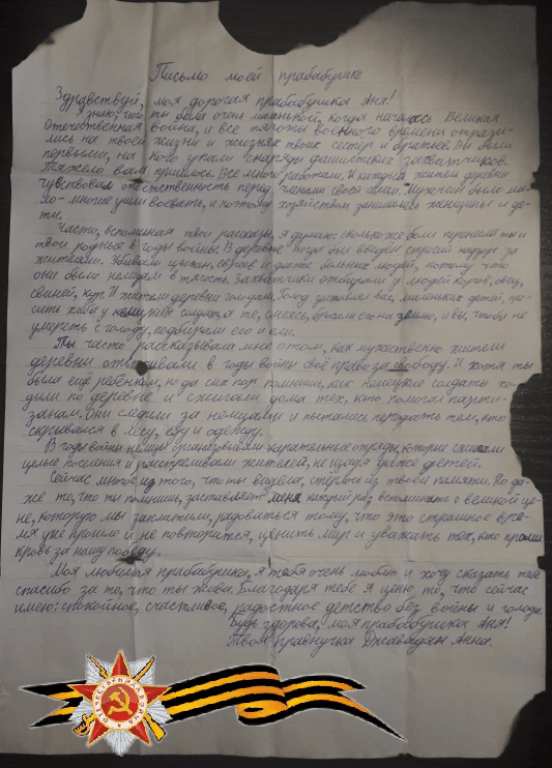 Письмо моей прабабушке
Здравствуй, моя дорогая прабабушка Аня!
Я знаю, что ты была очень маленькой, когда началась Великая
Отечественная война, и все тяготы военного времени отрази-
лись на твоей жизни и жизнях твоих сестёр и братьев. Вы были
первыми, на кого упали снаряды фашистских захватчиков.
Тяжело вам пришлось. Все много работали. И каждый житель деревни
чувствовал ответственность перед членами своей семьи. Мужчин было ма-
ло-многие ушли воевать, и поэтому хозяйством занимались женщины и де-
ти.
Часто, вспоминая твои рассказы, я думаю: сколько же боли перенесли ты и
твои родные в годы войны. В деревне тогда был введён строгий надзор за
жителями. Убивали цыган, евреев и даже больных людей, потому что
они были немцам в тягость. Захватчики отбирали у людей коров, овец,
свиней, кур. И жители деревни голодали. Голод заставлял вас, маленьких детей, про-
сить хлеба у немецких солдат, а те, смеясь, бросали его на землю, и вы, чтобы не
умереть с голоду, подбирали его и ели.
Ты часто рассказывала мне о том, как мужественно жители
деревни отстаивали в годы войны своё право на свободу. И хотя ты
была ещё ребёнком, но до сих пор помнишь, как немецкие солдаты хо-
дили по деревне и сжигали дома тех, кто помогал парти-
занам. Они следили за немцами и пытались передать тем, кто
скрывался в лесу, еду и одежду.
В годы войны немцы организовывали карательные отряды, которые сжигали
целые поселения и расстреливали жителей, не щадя даже детей.
Сейчас многое из того, что ты видела, стёрлось из твоей памяти. Но да-
же то, что ты помнишь, заставляет меня каждый раз вспоминать о великой це-
не, которую мы заплатили, радоваться тому, что это страшное вре-
мя уже прошло и не повторится, ценить мир и уважать тех, кто пролил
кровь за нашу победу.
Моя любимая прабабушка, я тебя очень люблю и хочу сказать тебе
спасибо за то, что ты жива. Благодаря тебе я ценю то, что сейчас
имею: спокойное, счастливое, радостное детство без войны и голода.
Будь здорова, моя прабабушка Аня!
Твоя правнучка Джавадян Анна.